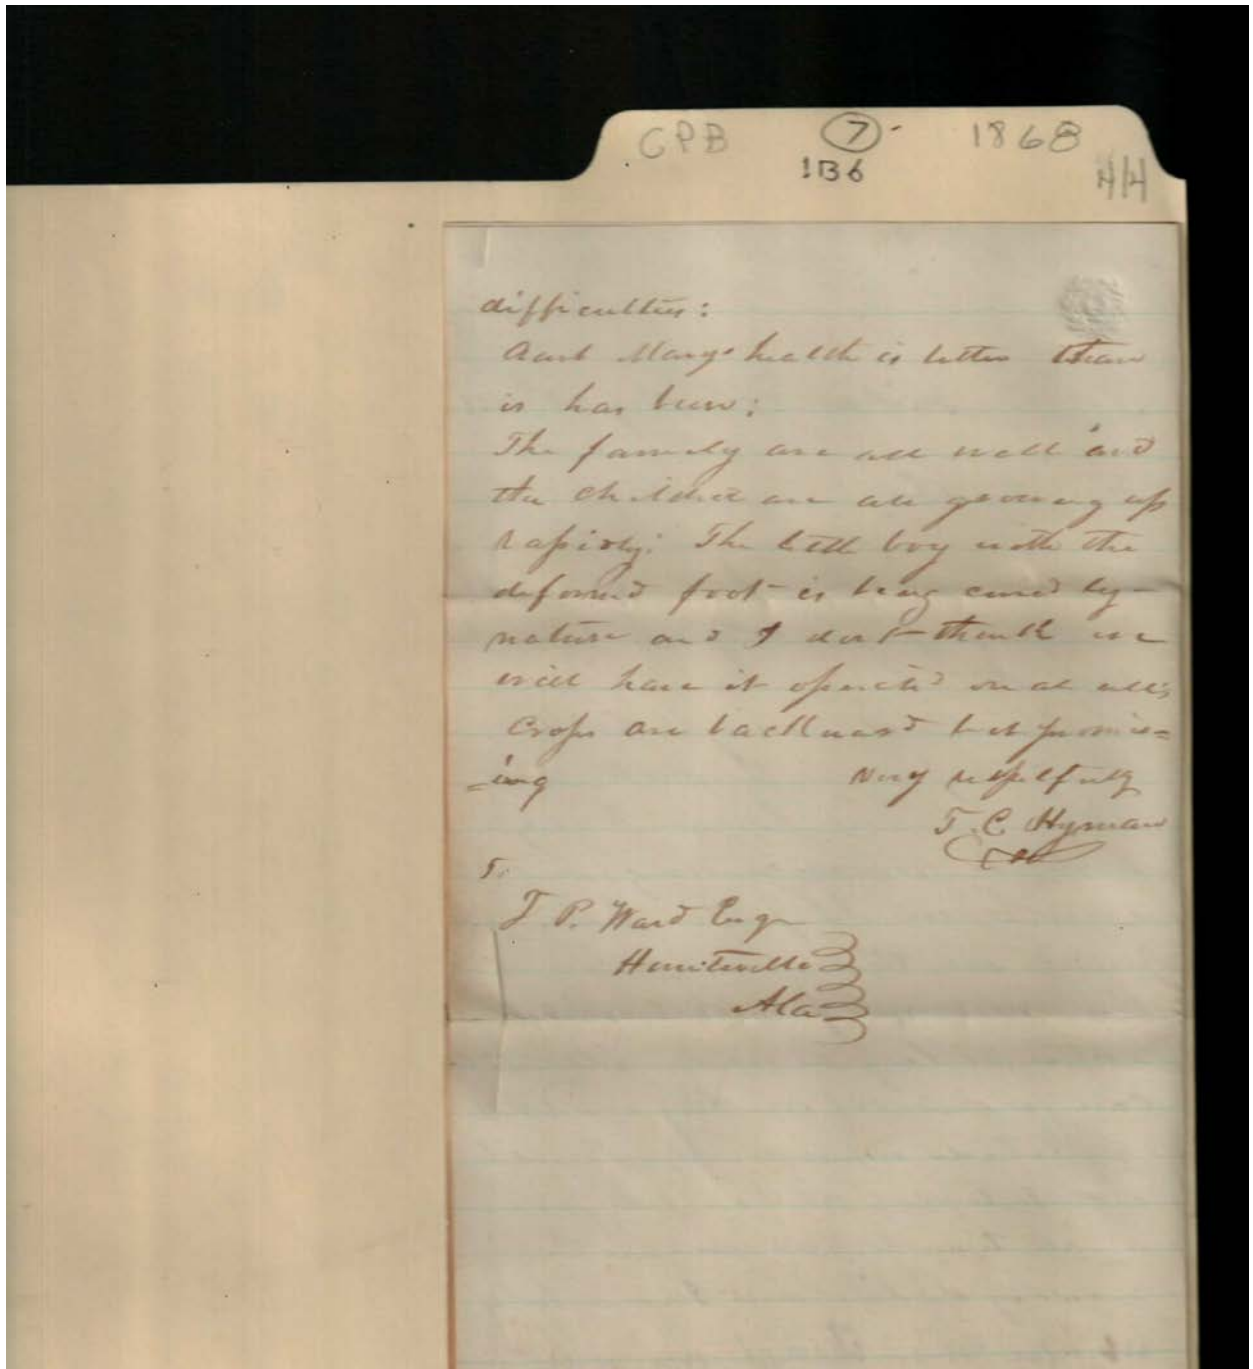 CPB 7 1868
1B6 4/4
difficulties:
Aunt Marys health is better than
is has been;
The family are all well and
the children are all growing up
rapidly: The little boy with the
deformed foot is being cured by
nature and I dont think we
will have it operated on at all;
Crops are backward but promis=
=ing very respectfully
T. C. Hyman
To
T P. Ward Esqr
Huntsville
Ala